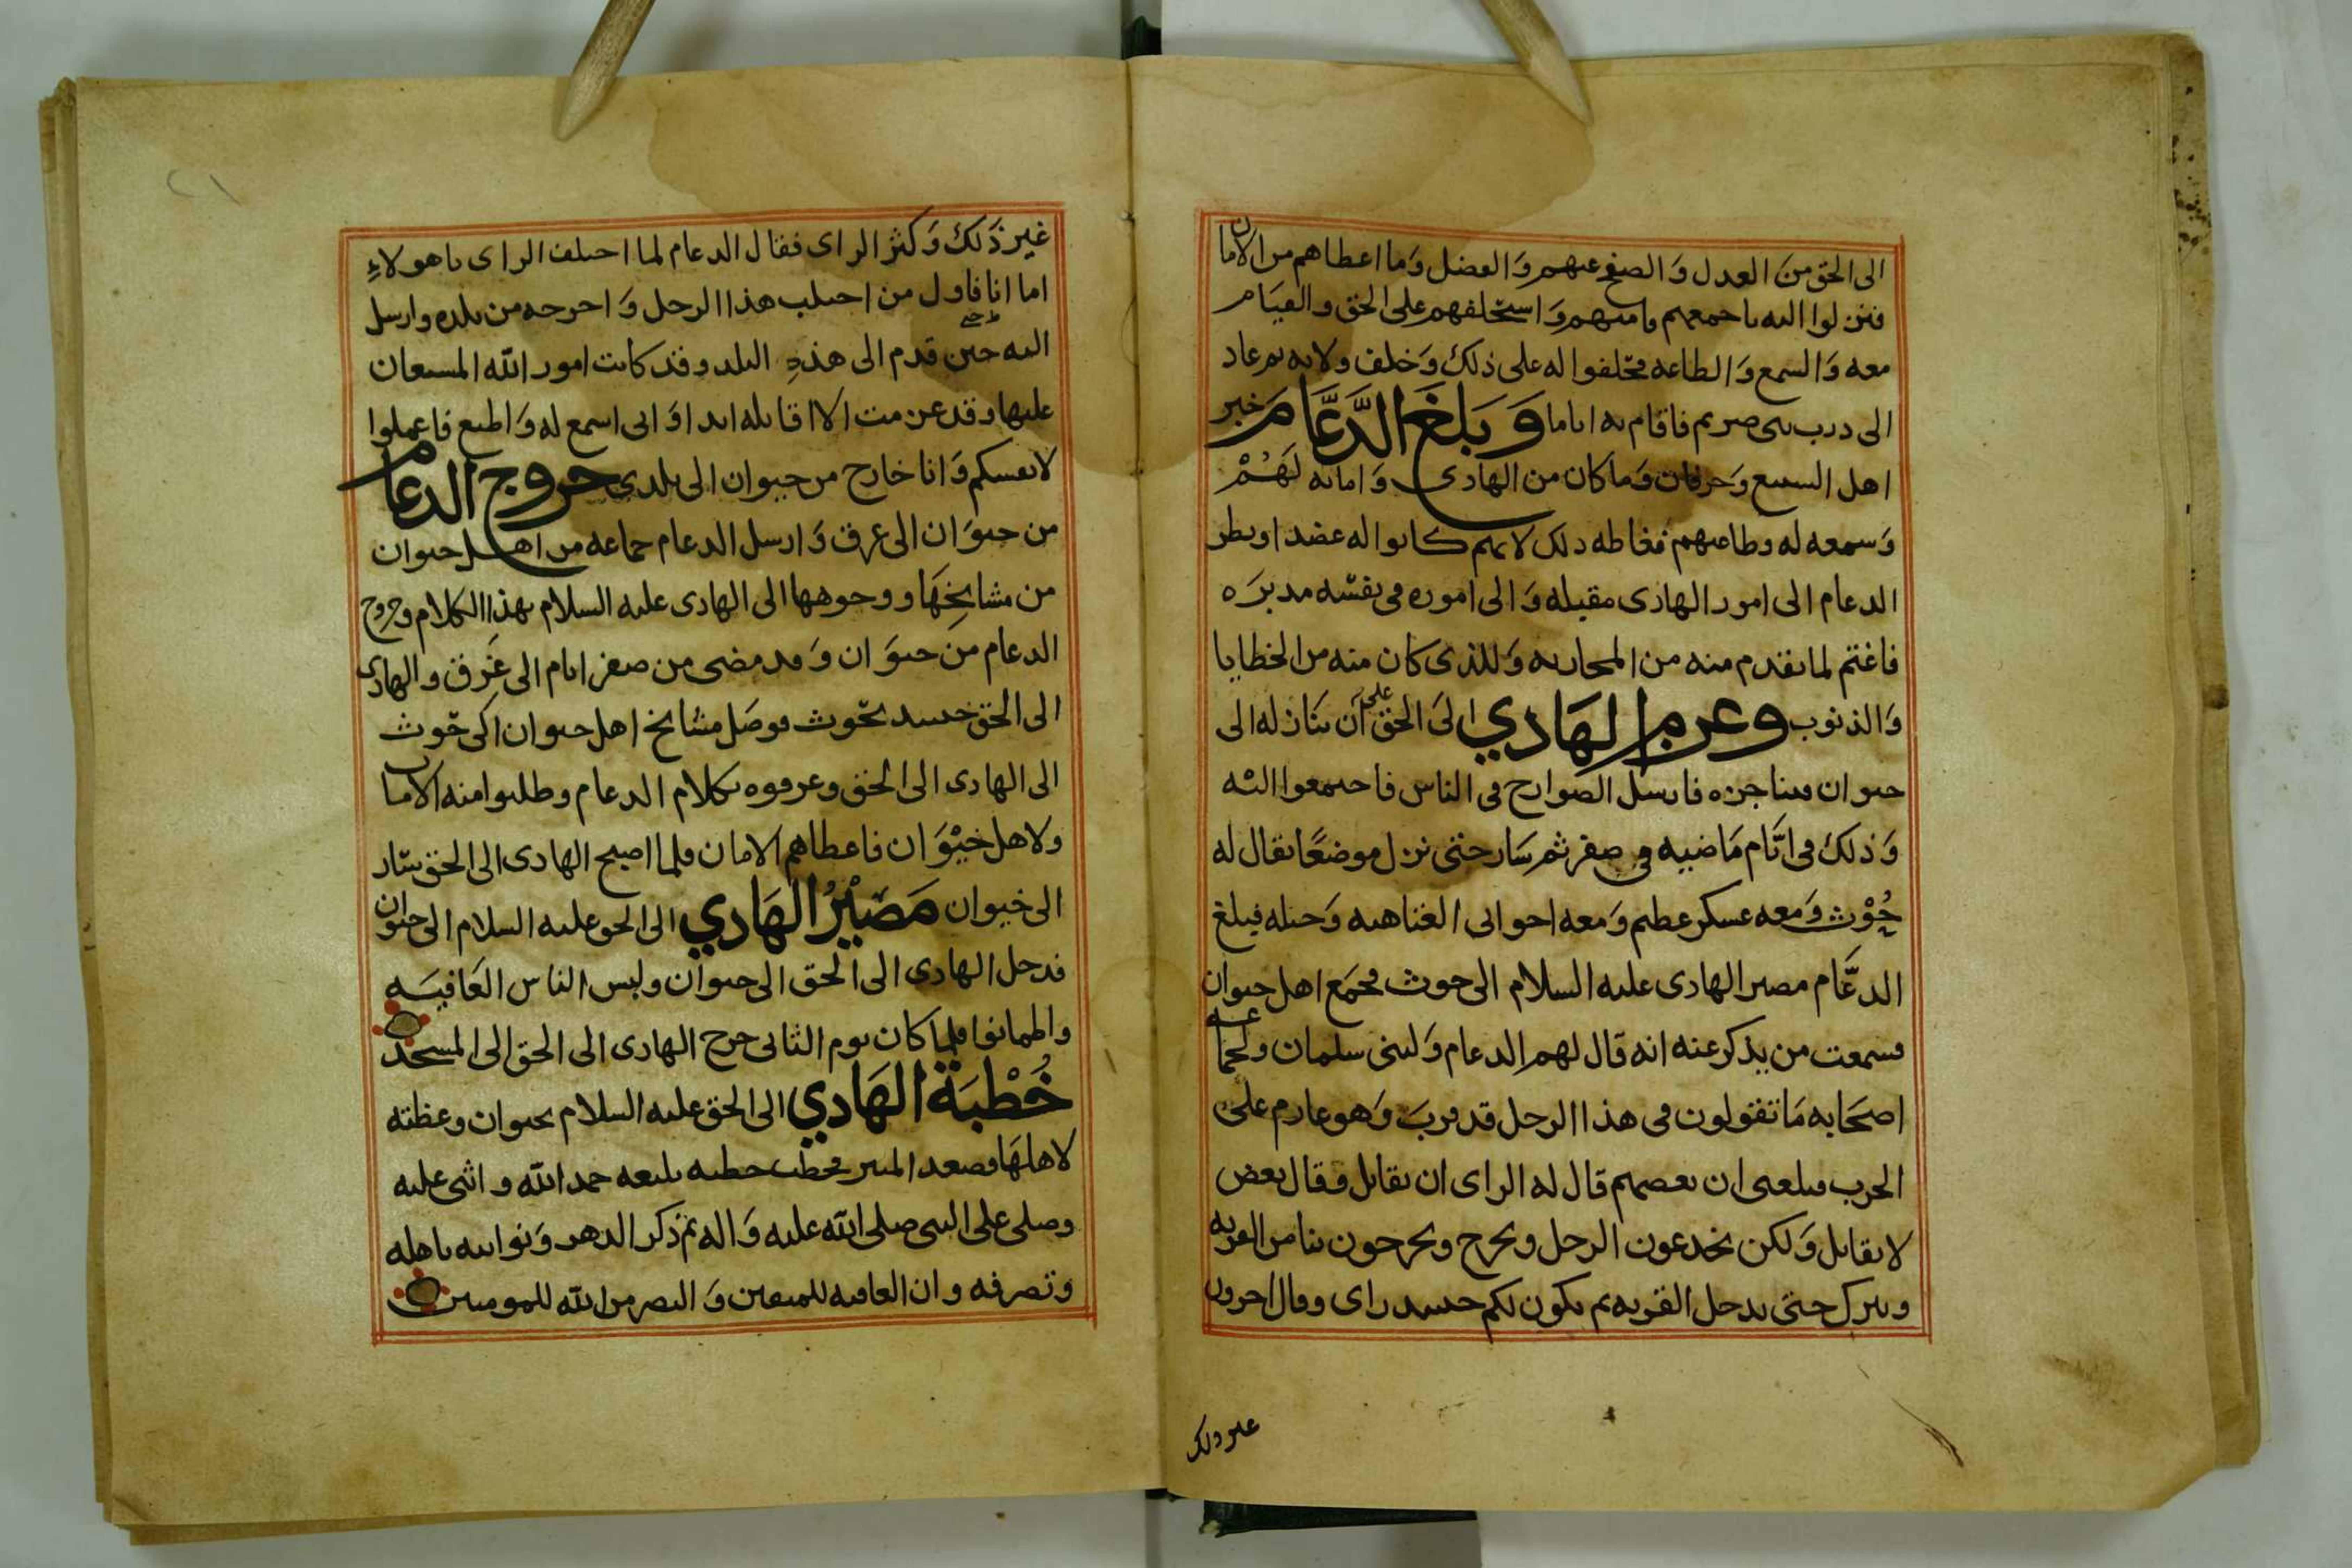 الى الحق من العدل والصفح عنهم والفضل وما اعطاهم من الامان
فنزلوا اليه باجمعهم وامنهم واستحلفهم على الحق والقيام
معه والسمع والطاعه فحلفوا له على ذلك وخلف ولاته ثم عاد
الى درب بنى صريم فاقام به اياما وَبَلَغَ الدَّعَّامَ خبر
اهل السبيع وحرفان وما كان من الهادى وامانه لَهُمْ
وسمعه له وطاعتهم فغاظه ذلك لانهم كانوا له عضدا ونظر
الدعام الى امور الهادى مقبله والى اموره فى نفسه مدبره
فاغتم لما تقدم منه من المحاربه وللذى كان منه من الخطايا
والذنوب وعزم الهَادي الى الحق على ان يتنازله الى
خيوان فيناجزه فارسل الصوارخ فى الناس فاجتمعوا اليه
وذلك فى ايَّام مَاضيه فى صفر ثم سَار حتى نزل موضعًا يقال له
حُوْث ومعه عسكر عظيم ومعه احو ابى العتاهيه وخيله فبلغ
الدعَّام مصير الهادى عليه السلام الى حوث فجمع اهل خيوان
فسمعت من يذكر عنه انه قال لهم الدعام ولبنى سلمان ولجماعه
اصحابه مَا تقولون فى هذا الرجل قد قرب وهو عازم على
الحرب فبلغنى ان بعضهم قال له الراى ان نقاتل وقال بعض
لا نقاتل ولكن نخدعون الرجل ونخرج ويخرجون بنا من القريه
ونترك حتى يدخل القريه ثم يكون لكم حينئذ راى وقال اخرون
غير ذلك
غير ذَلك وكثر الراى فقال الدعام لما اختلف الراى ياهولاءِ
اما انا فاول من اجتلب هذا الرجل واخرجه من بلده وارسل
اليه حين قدم الى هذهِ البلد وقد كانت امور الله المستعان
عليها وقد عزمت الا اقاتله ابدا وانى اسمع له واطيع فاعملوا
لانفسكم وَانا خارج من خيوان الى بلدى خروج الدعام
من خيوَان الى غرق وَارسل الدعام جماعه من اهل خيوان
من مشايخِهَا ووجوهها الى الهادى عليه السلام بهذا الكلام وخروج
الدعام من خيوَان وَقد مضى من صفر ايام الى غَرق والهادى
الى الحق حينئذ بحوث فوصَل مشايخ اهل خيوان الى حوث
الى الهادى الى الحق وعرفوه بكلام الدعام وطلبوا منه الامان
ولاهل خَيْوَان فاعطاهم الامان فلما اصبح الهادى الى الحق سَار
الى خيوان مَصْيْرُ الهَادي الى الحق عليه السلام الى خيوان
فدخل الهادى الى الحق الى خيوان ولبس الناس العَافيَه
واطمانوا فلما كان يوم الثانى خرج الهادى الى الحق الى المسجد
خُطْبَة الهَادي الى الحق عليه السلام بخيوان وعظته
لاهلهَا فصعد المنبر فخطب خطبه بليغه حمد الله واثنى عليه
وصلى على النبى صلى الله عليه وَاله ثم ذكر الدهر وَنوايبه باهله
وتصرفه وان العاقبه للمتقين وَالنصر من الله للمومنين
٢١